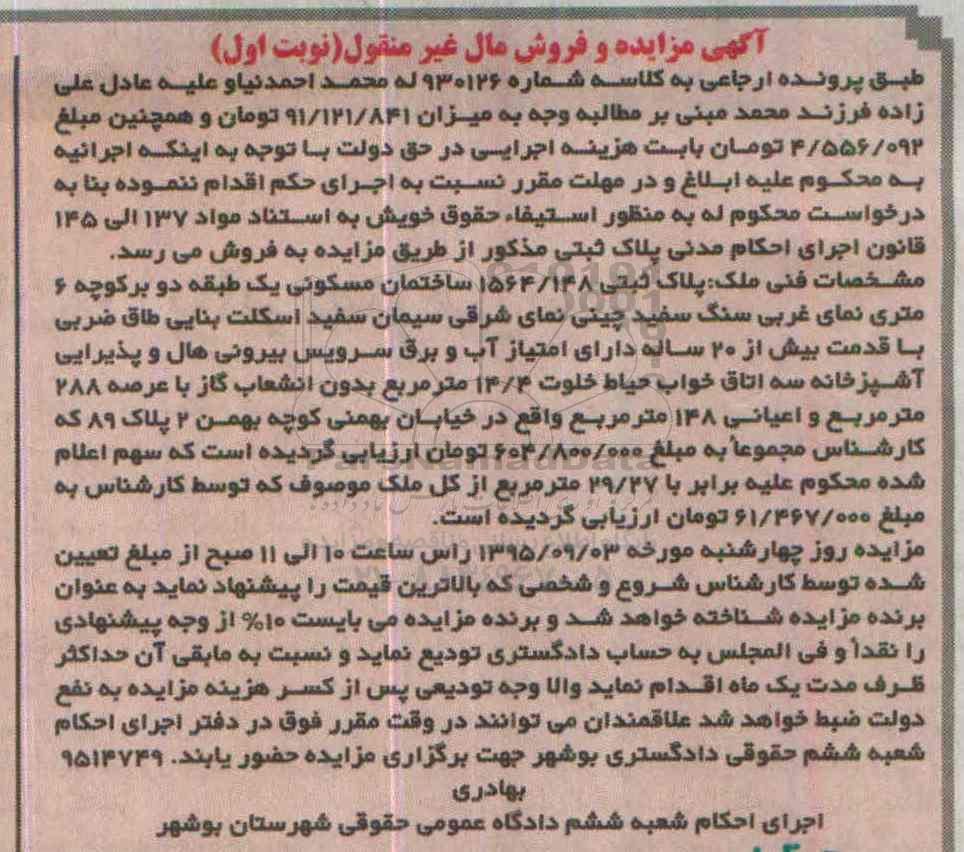 آگهی مزایده و فروش مال غیر منقول(نوبت اول)
طبق پرونده ارجاعی به کلاسه شماره ۹۳۰۱۲۶ له محمد احمدنیاو علیه عادل علی
زاده فرزند محمد مبنی بر مطالبه وجه به میزان ۹۱/۱۲۱/۸۴۱ تومان و همچنین مبلغ
۴/۵۵۶/۰۹۲ تومان بابت هزینه اجرایی در حق دولت با توجه به اینکه اجرائیه
به محکوم علیه ابلاغ و در مهلت مقرر نسبت به اجرای حکم اقدام ننموده بنا به
درخواست محکوم له به منظور استیفاء حقوق خویش به استناد مواد ۱۳۷ الی ۱۴۵
قانون اجرای احکام مدنی پلاک ثبتی مذکور از طریق مزایده به فروش می رسد.
مشخصات فنی ملک:پلاک ثبتی ۱۵۶۴/۱۴۸ ساختمان مسکونی یک طبقه دو برکوچه ۶
متری نمای غربی سنگ سفید چینی نمای شرقی سیمان سفید اسکلت بنایی طاق ضربی
با قدمت بیش از ۲۰ ساله دارای امتیاز آب و برق سرویس بیرونی هال و پذیرایی
آشپزخانه سه اتاق خواب حیاط خلوت ۱۴/۴ مترمربع بدون انشعاب گاز با عرصه ۲۸۸
مترمربع و اعیانی ۱۴۸ مترمربع واقع در خیابان بهمنی کوچه بهمن ۲ پلاک ۸۹ که
کارشناس مجموعاً به مبلغ ۶۰۴/۸۰۰/۰۰۰ تومان ارزیابی گردیده است که سهم اعلام
شده محکوم علیه برابر با ۲۹/۲۷ مترمربع از کل ملک موصوف که توسط کارشناس به
مبلغ ۶۱/۴۶۷/۰۰۰ تومان ارزیابی گردیده است.
مزایده روز چهارشنبه مورخه ۱۳۹۵/۰۹/۰۳ راس ساعت ۱۰ الی ۱۱ صبح از مبلغ تعیین
شده توسط کارشناس شروع و شخصی که بالاترین قیمت را پیشنهاد نماید به عنوان
برنده مزایده شناخته خواهد شد و برنده مزایده می بایست ۱۰% از وجه پیشنهادی
را نقداً و فی المجلس به حساب دادگستری تودیع نماید و نسبت به مابقی آن حداکثر
ظرف مدت یک ماه اقدام نماید والا وجه تودیعی پس از کسر هزینه مزایده به نفع
دولت ضبط خواهد شد علاقمندان می توانند در وقت مقرر فوق در دفتر اجرای احکام
شعبه ششم حقوقی دادگستری بوشهر جهت برگزاری مزایده حضور یابند. ۹۵۱۴۷۴۹
بهادری
اجرای احکام شعبه ششم دادگاه عمومی حقوقی شهرستان بوشهر